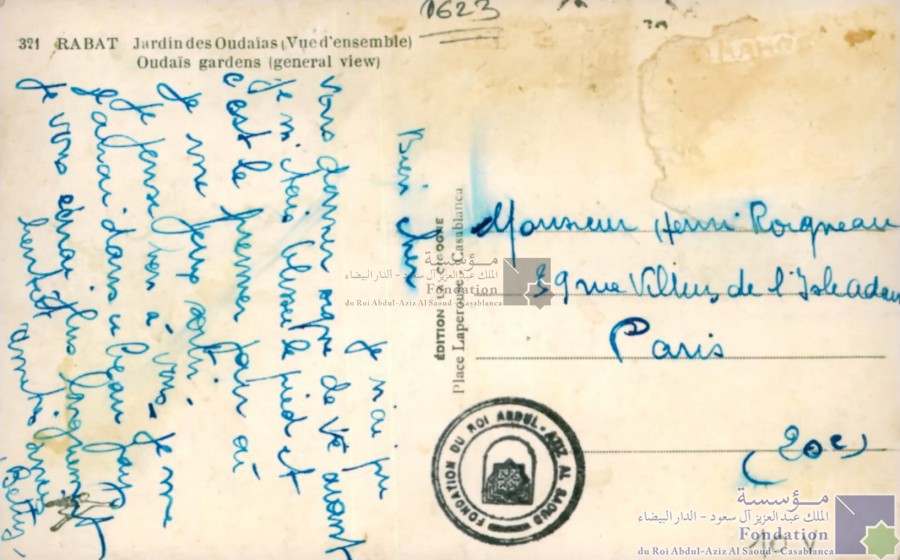 1623
321 RABAT Jardin des Oudaïas (Vue d'ensemble)
Oudaïs gardens (general view)
Bien cher
Je n'ai pu
vous donner signe de vie avant
je m'étais blessé le pied et
c'est le premier jour où
je me fais sortir
Je pense bien à vous je me
dans ce beau
Je vous écrirai plus longuement
bientôt amitiés
ÉDITION LA CIGOGNE
Place Laperouse - Casablanca
Monsieur Henri Roigneau
59 rue Villiers de l'Isle Adam
Paris
(20e)
FONDATION DU ROI ABDUL-AZIZ AL SAOUD
مؤسسة
الملك عبد العزيز آل سعود - الدار البيضاء
Fondation
du Roi Abdul-Aziz Al Saoud - Casablanca
مؤسسة
الملك عبد العزيز آل سعود - الدار البيضاء
Fondation
du Roi Abdul-Aziz Al Saoud - Casablanca